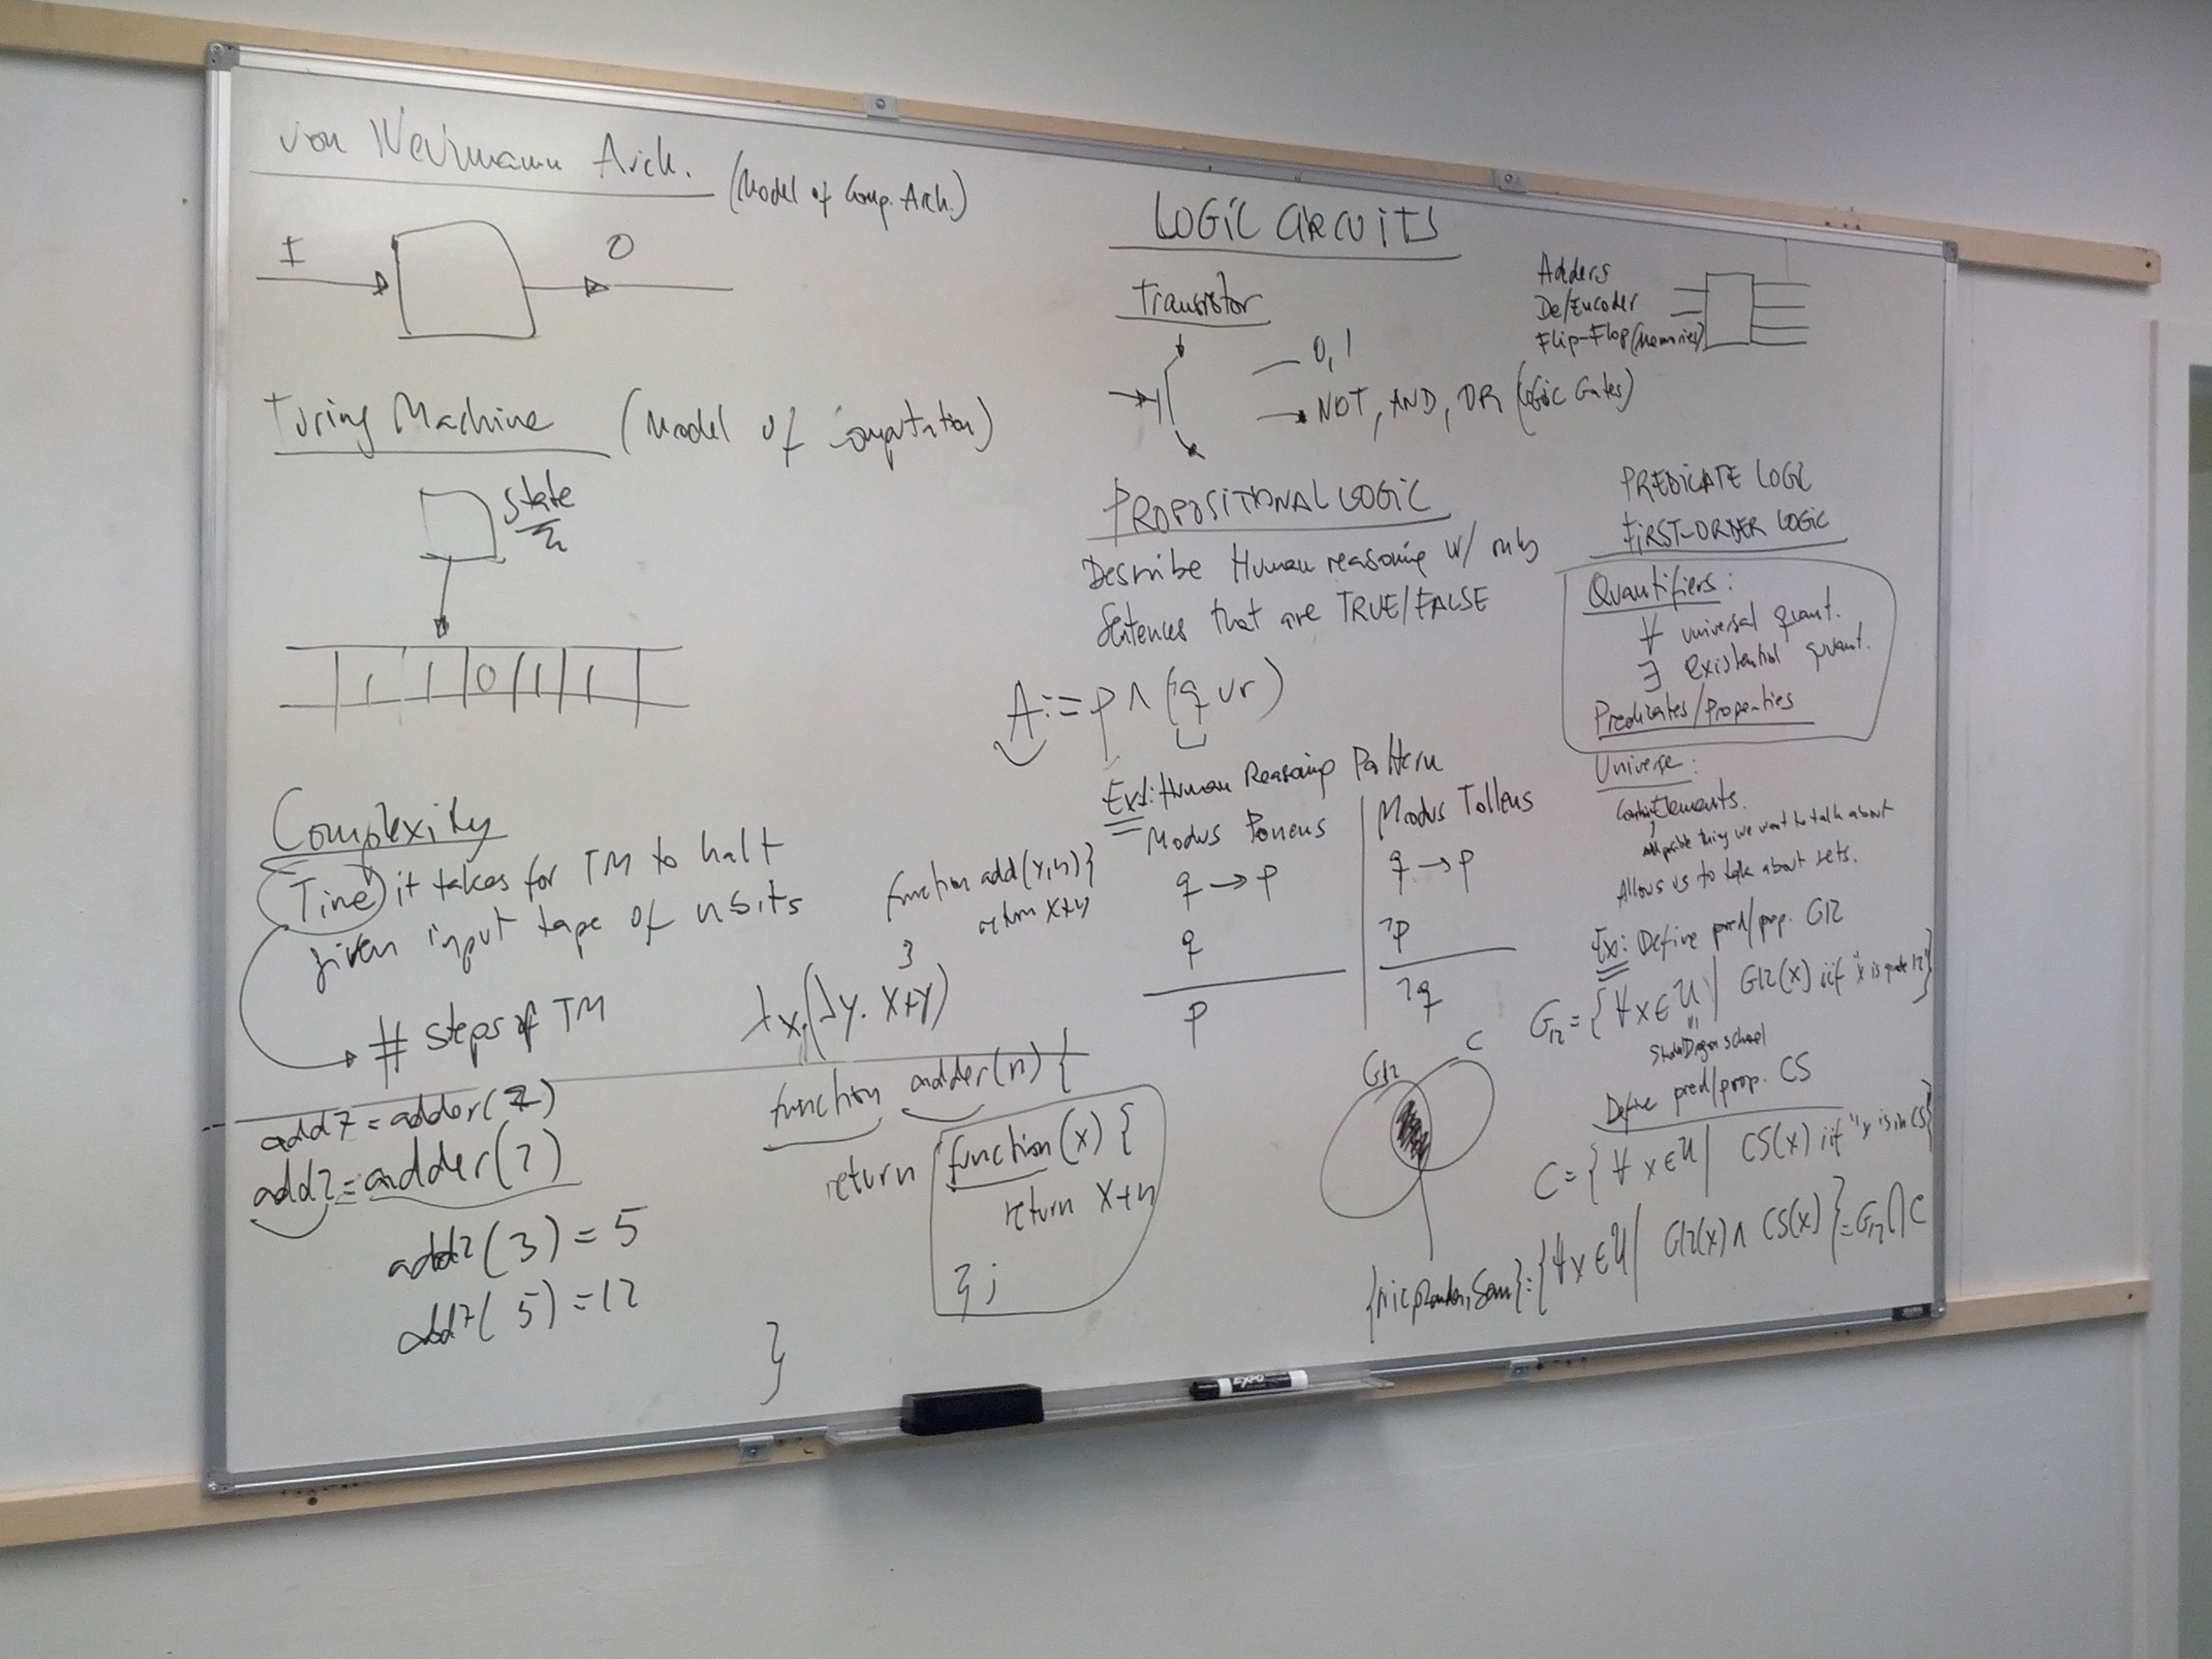 von Neumann Arch.
(Model of Comp. Arch.)
I
O
Turing Machine (Model of computation)
State
1 1 0 1 1
Complexity
Time it takes for TM to halt
given input tape of n bits
# steps of TM
function add(x,n){
return x+n
}
λx.(λy. x+y)
add7 = adder(7)
add2 = adder(2)
add2(3) = 5
add7(5) = 12
function adder(n) {
return function(x) {
return x+n
};
}
LOGIC CIRCUITS
Transistor
0, 1
NOT, AND, OR (Logic Gates)
Adders
De/Encoder
Flip-Flop (Memories)
PROPOSITIONAL LOGIC
Describe Human reasoning w/ only
sentences that are TRUE/FALSE
A := p ∧ (¬q ∨ r)
Ex1: Human Reasoning Pattern
Modus Ponens
q → p
q
p
Modus Tollens
q → p
¬p
¬q
G12
C
PREDICATE LOGIC
FIRST-ORDER LOGIC
Quantifiers:
∀ universal quant.
∃ existential quant.
Predicates/Properties
Universe:
Elements.
possible thing we want to talk about
Allows us to talk about sets.
Ex: Define pred/prop. G12
G12 = {∀x∈U | G12(x) iif "x is grade 12"}
school
Define pred/prop. CS
C = {∀x∈U | CS(x) iif "x is in CS"}
Sam} = {∀x∈U | G12(x) ∧ CS(x)} = G12 ∩ C
EXPO